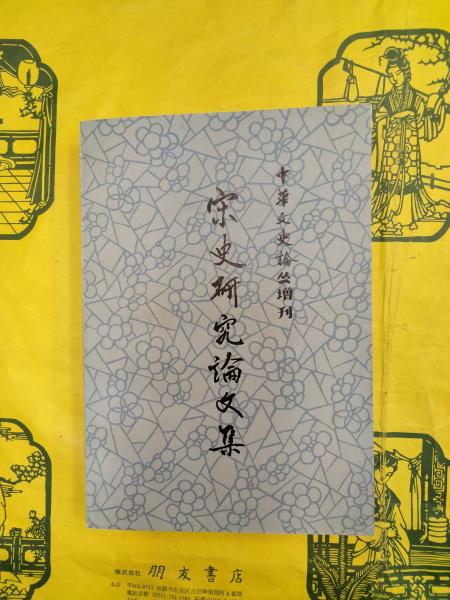 中華文史論丛增刊
宋史研究論文集
株式会社 朋友書店
本山 〒606-8311 京都市左京区吉田神楽岡町8番地
電話京都 (075) 761-1285